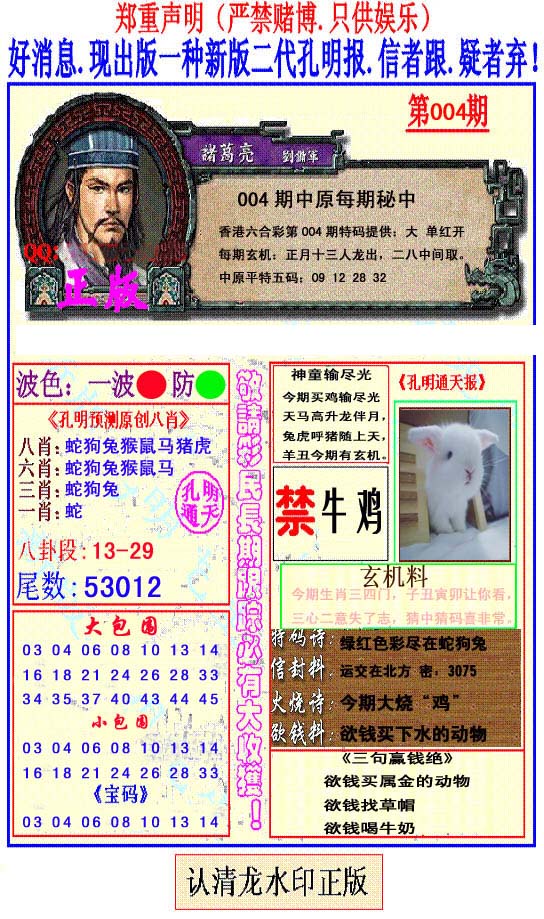 郑重声明（严禁赌博.只供娱乐）
好消息.现出版一种新版二代孔明报.信者跟.疑者弃!
第004期
諸葛亮 劉備軍
004 期中原每期秘中
香港六合彩第 004 期特码提供：大 单红开
每期玄机：正月十三人龙出，二八中间取。
中原平特五码：09 12 28 32
QQ:
正版
波色：一波 防
《孔明预测原创八肖》
八肖：蛇狗兔猴鼠马猪虎
六肖：蛇狗兔猴鼠马
三肖：蛇狗兔
一肖：蛇
孔明
通天
八卦段：13-29
尾数：53012
大包围
03 04 06 08 10 13 14
16 18 21 24 26 28 33
34 35 37 40 43 44 45
小包围
03 04 06 08 10 13 14
16 18 21 24 26 28 33
《宝码》
03 04 06 08 10 13 14
敬請彩民長期跟踪必有大收獲！
神童输尽光
今期买鸡输尽光
天马高升龙伴月，
兔虎呼猪随上天，
羊丑今期有玄机。
《孔明通天报》
禁牛鸡
玄机料
今期生肖三四门，子丑寅卯让你看，
三心二意失了志，猜中猜码喜非常。
特码诗：绿红色彩尽在蛇狗兔
信封料：运交在北方 密，3075
火烧诗：今期大烧“鸡”
欲钱料：欲钱买下水的动物
《三句赢钱绝》
欲钱买属金的动物
欲钱找草帽
欲钱喝牛奶
认清龙水印正版